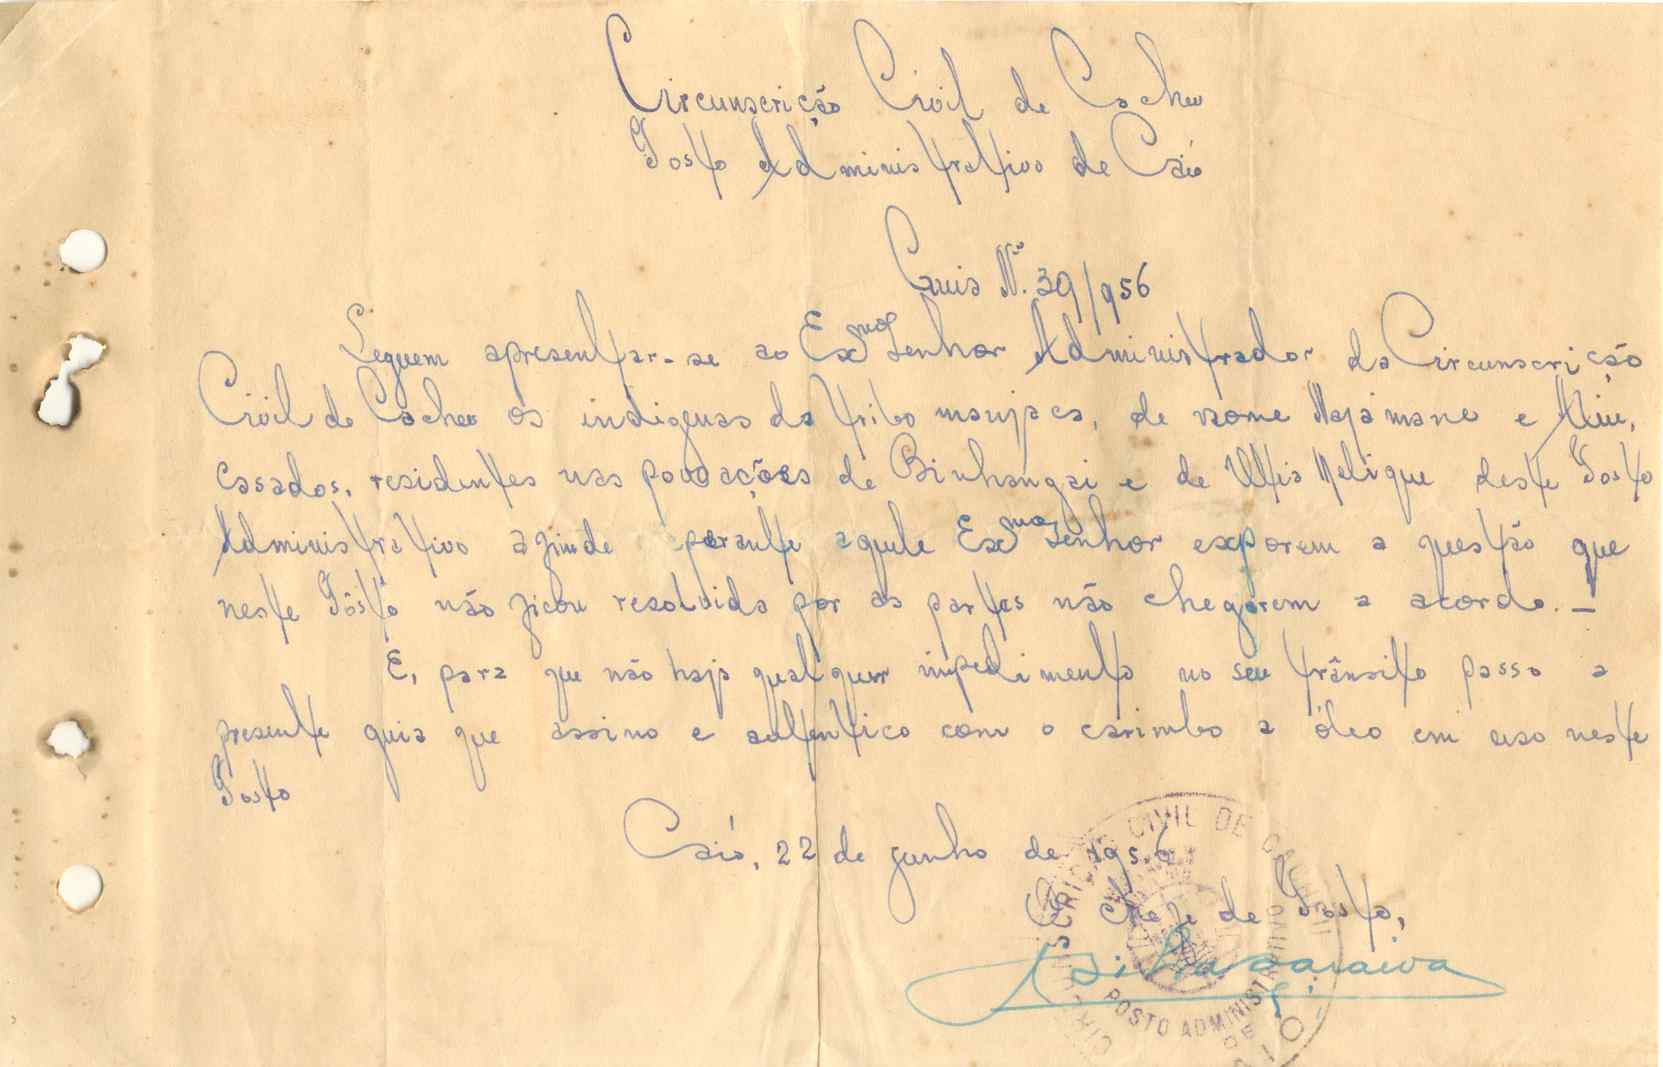 Circunscrição Civil de Cacheu
Posto Administrativo de Caió
Guia Nº. 39/956
Seguem apresentar-se ao Exmo Senhor Administrador da Circunscrição
Civil de Cacheu os indígenas da tribo manjaca, de nome Najámane e
casados, residentes nas povoações de Binhangai e de deste Posto
Administrativo afim de perante aquele Exmo Senhor exporem a questão que
neste Pôsto não ficou resolvida por as partes não chegarem a acordo. —
E, para que não haja qualquer impedimento no seu trânsito passo a
presente guia que assino e autentico com o carimbo a óleo em uso neste
Posto
Caió, 22 de junho de 1956
O Chefe de Posto,
Silva Saraiva
CIRCUNSCRIÇÃO CIVIL DE CACHEU
POSTO ADMINISTRATIVO
DE